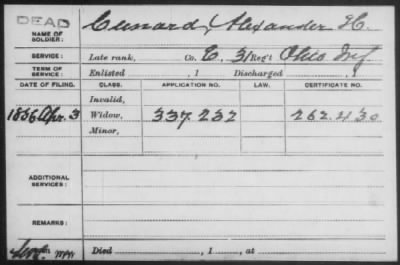 DEAD
NAME OF SOLDIER: Cunard, Alexander H.
SERVICE: Late rank, Co. E, 31 Reg't Ohio Inf
TERM OF SERVICE: Enlisted , 1 Discharged , 1
DATE OF FILING. CLASS. APPLICATION NO. LAW. CERTIFICATE NO.
Invalid,
1886 Apr. 3 Widow, 337.232 262.430
Minor,
ADDITIONAL SERVICES:
REMARKS:
Died , 1 , at